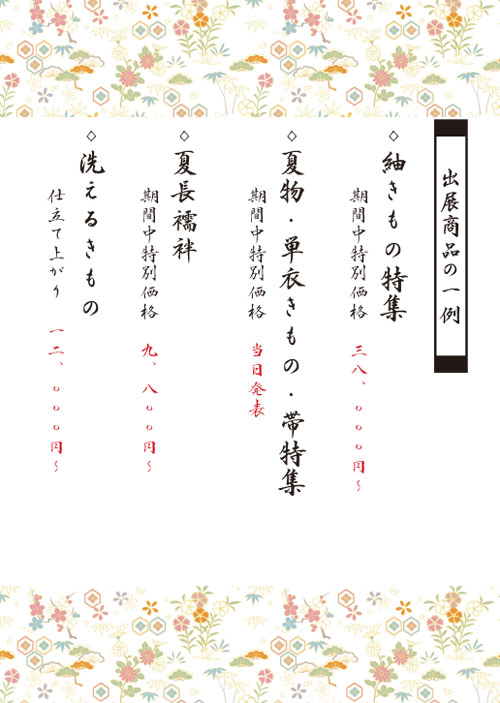 出展商品の一例
◇紬きもの特集
期間中特別価格 三八、〇〇〇円~
◇夏物・単衣きもの・帯特集
期間中特別価格 当日発表
◇夏長襦袢
期間中特別価格 九、八〇〇円~
◇洗えるきもの
仕立て上がり 一二、〇〇〇円~